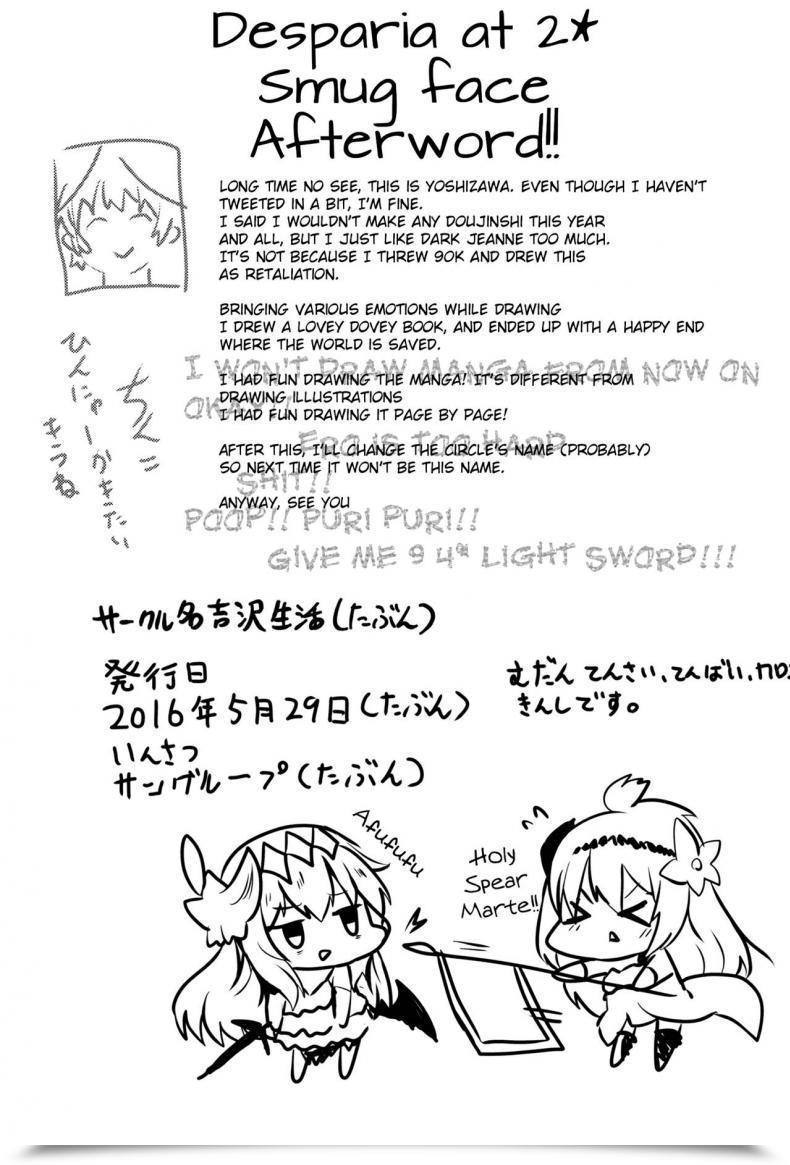 Desparia at 2★
Smug face
Afterword!!
LONG TIME NO SEE, THIS IS YOSHIZAWA. EVEN THOUGH I HAVEN'T
TWEETED IN A BIT, I'M FINE.
I SAID I WOULDN'T MAKE ANY DOUJINSHI THIS YEAR
AND ALL, BUT I JUST LIKE DARK JEANNE TOO MUCH.
IT'S NOT BECAUSE I THREW 90K AND DREW THIS
AS RETALIATION.
BRINGING VARIOUS EMOTIONS WHILE DRAWING
I DREW A LOVEY DOVEY BOOK, AND ENDED UP WITH A HAPPY END
WHERE THE WORLD IS SAVED.
I WON'T DRAW MANGA FROM NOW ON
I HAD FUN DRAWING THE MANGA! IT'S DIFFERENT FROM
DRAWING ILLUSTRATIONS
OKAY!!
I HAD FUN DRAWING IT PAGE BY PAGE!
ERO IS TOO HARD
AFTER THIS, I'LL CHANGE THE CIRCLE'S NAME (PROBABLY)
SO NEXT TIME IT WON'T BE THIS NAME.
SHIT!!
ANYWAY, SEE YOU
POOP!! PURI PURI!!
GIVE ME 9 4* LIGHT SWORD!!!
ちんこ
ひんにゅーかきたい
きうね
サークル名吉沢生活(たぶん)
発行日
2016年5月29日(たぶん)
いんさつ
サングループ(たぶん)
むだん てんさい、てんばい、カロ
きんしです。
Afufufu
Holy
Spear
Marte!!